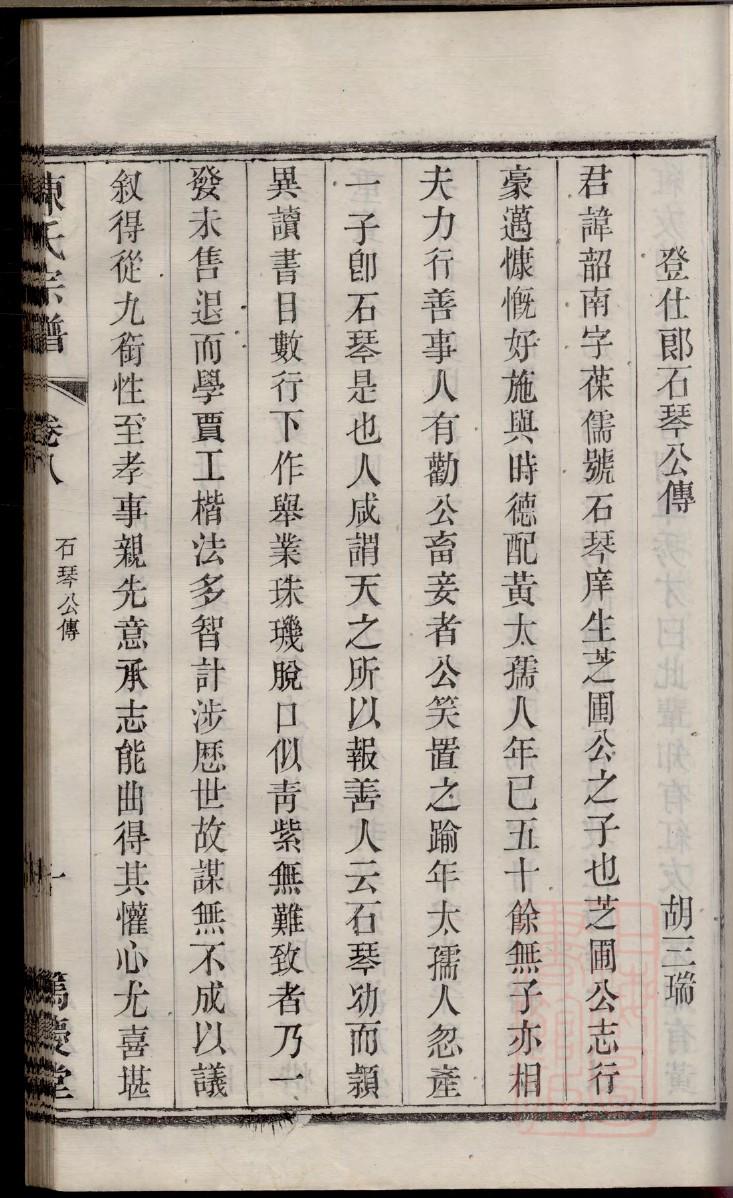 登仕郎石琴公傳　胡三瑞
君諱韶南字葆儒號石琴庠生芝圃公之子也芝圃公志行
豪邁慷慨好施與時德配黃太孺人年已五十餘無子亦相
夫力行善事人有勸公畜妾者公笑置之踰年太孺人忽產
一子卽石琴是也人咸謂天之所以報善人云石琴幼而穎
異讀書目數行下作舉業珠璣脫口似靑紫無難致者乃一
發未售退而學賈工楷法多智計涉歷世故謀無不成以議
叙得從九銜性至孝事親先意承志能曲得其懽心尤喜堪
陳氏宗譜
卷八
石琴公傳
十
篤慶堂